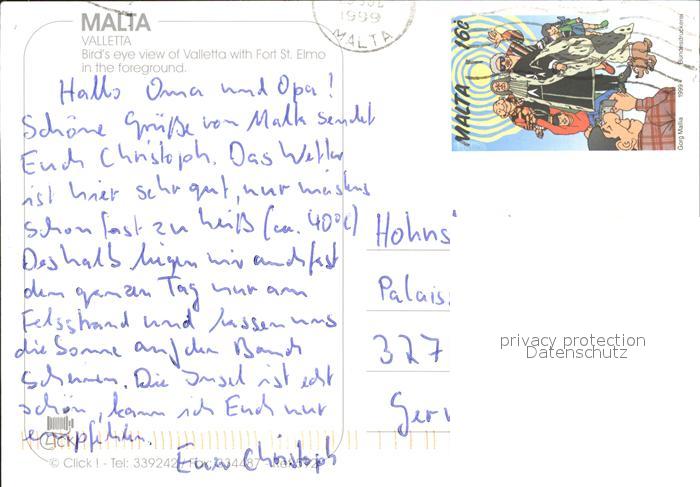 MALTA
VALLETTA
Bird's eye view of Valletta with Fort St. Elmo
in the foreground.
1999
MALTA
MALTA 16c
Gorg Mallia 1999 Bundesdruckerei
Hallo Oma und Opa!
Schöne Grüße von Malta sendet
Euch Christoph. Das Wetter
ist hier sehr gut, nur meistens
schon fast zu heiß (ca. 40°C)
Deshalb liegen wir auch fast
den ganzen Tag nur am
Felsstrand und lassen uns
die Sonne auf den Bauch
scheinen. Die Insel ist echt
schön, kann ich Euch nur
empfehlen.
Euer Christoph
Hohns
Palais
327
Ger
privacy protection
Datenschutz
CLICK
© Click ! - Tel: 339242